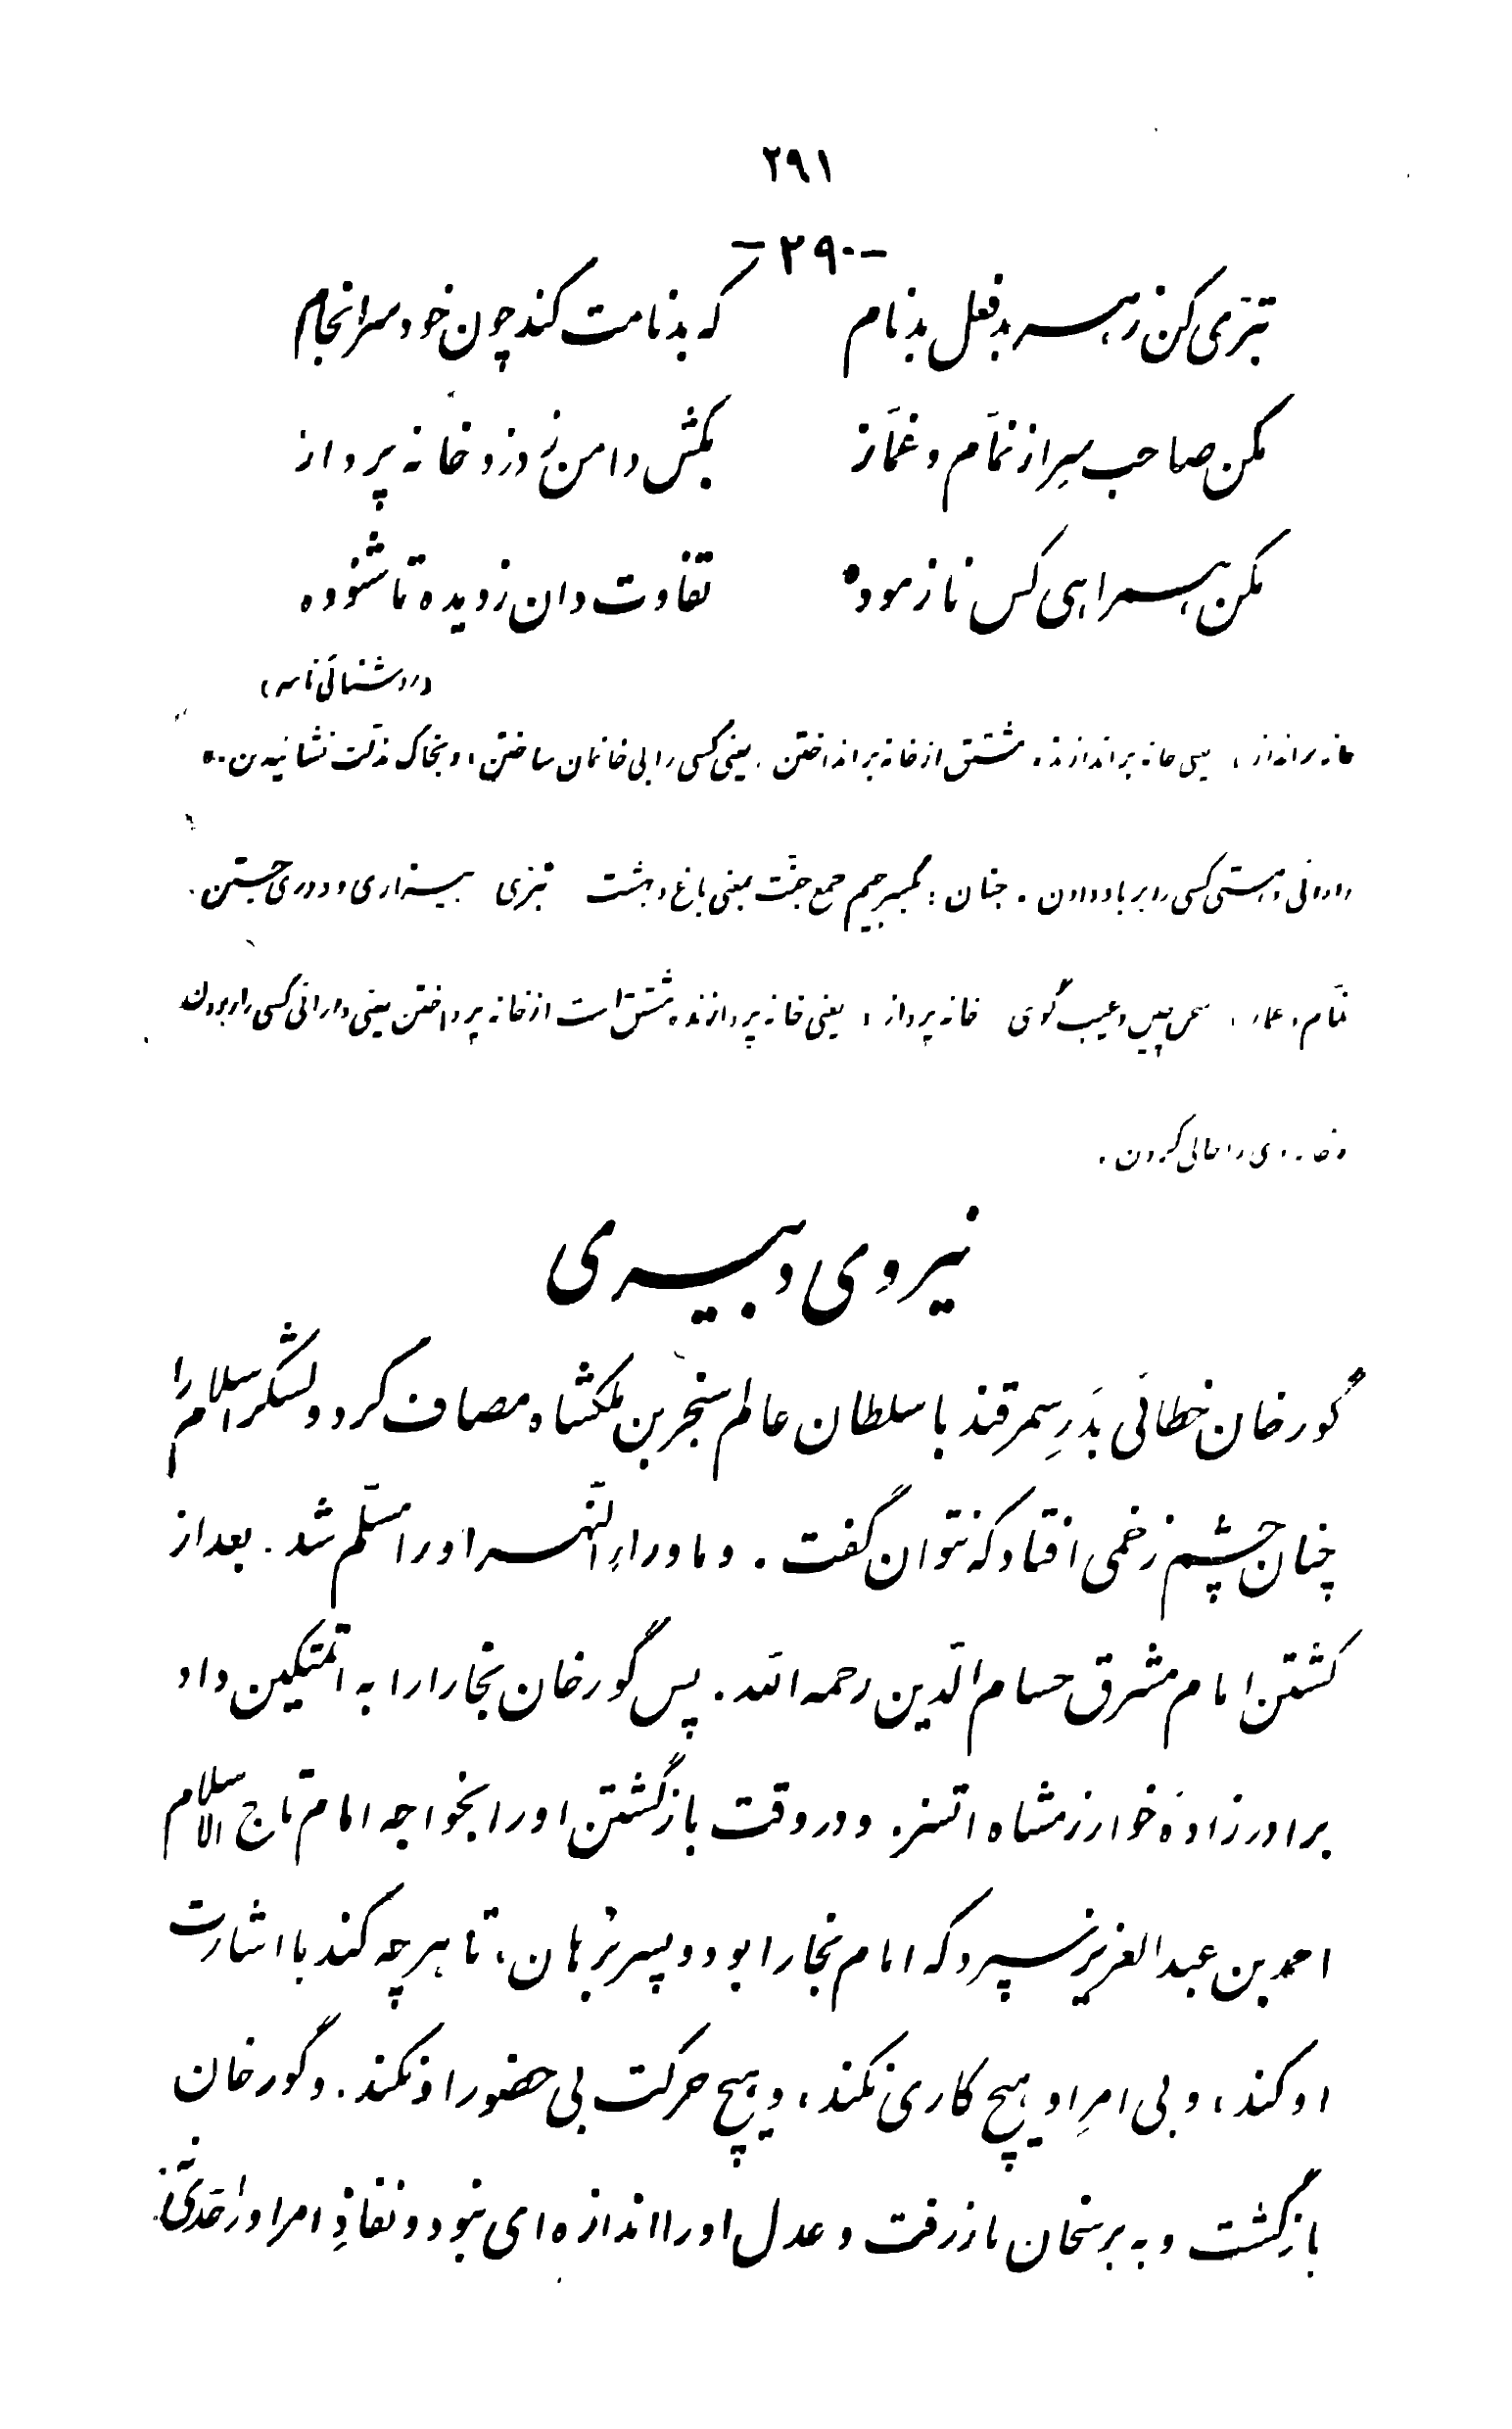 ۲۹۱
-۲۹۰-
تبّری کن ز هر بد فعل بدنام که بدنامت کند چون خود سرانجام
مکن صاحب سِر از نمّام و غمّاز بکش دامن ز دزد و خانه پرداز
مکن همراهی کس نازموده تفاوت دان ز دیده تا شنوده
(روشنائی نامه)
خانه برانداز، یعنی خانه براندازنده. مشتق از خانه برانداختن. یعنی کسی را بی خانمان ساختن، و بخاک مذلّت نشانیدن.
دارائی و هستی کسی را بر باد دادن. جنان: بکسر جیم جمع جنّت بمعنی باغ و بهشت تبّری بیزاری و دوری جستن.
نمّام و غماز، سخن چین و عیب گوی خانه پرداز، یعنی خانه پردازنده مشتق است از خانه پرداختن یعنی دارائی کسی را
را خالی کردن.
نیروی دبیری
گورخان خطائی بدَرِ سمرقند با سلطان عالم سنجر بن ملکشاه مصاف کرد و لشکر اسلام را
چنان چشم زخمی افتاد که نتوان گفت. و ماوراء النّهر او را مسلّم شد. بعد از
کشتن امام مشرق حسام الدّین رحمه الله. پس گورخان بخارا را به اتمتکین داد
برادرزادهٔ خوارزمشاه اتسز. و در وقت بازگشتن او را بخواجه امام تاج الاسلام
احمد بن عبدالعزیز سپرد که امام بخارا بود و پسر بُرهان، تا هر چه کند با اشارت
او کند، و بی امرِ او هیچ کاری نکند، و هیچ حرکت بی حضور او نکند. و گورخان
بازگشت و به برسخان باز رفت و عدل او را اندازه ای نبود و نفاذِ امر او را حَدّی